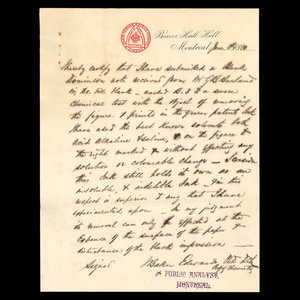 Beaver Hall Hill,
Montreal, June 18
I hereby certify that I have submitted a blank
Dominion note received from Mr G B Burland
on his bank marked D.I to a severe
chemical test with the object of removing
the figure & prints in the green patent Ink
I have used the best known solvents both
acid Alkaline on the figure &
the right marked without effecting any
solution or colourable change I consider
this Ink still holds its own as an
insoluble, & indelible Ink. In this
respect is superior to any that I have
experimented upon. In my judgment
its removal can only be effected at the
expence of the surface of the paper &
disturbance of the black impression
Signed J Baker Edwards
Profr Chemistry
& PUBLIC ANALYST,
MONTREAL